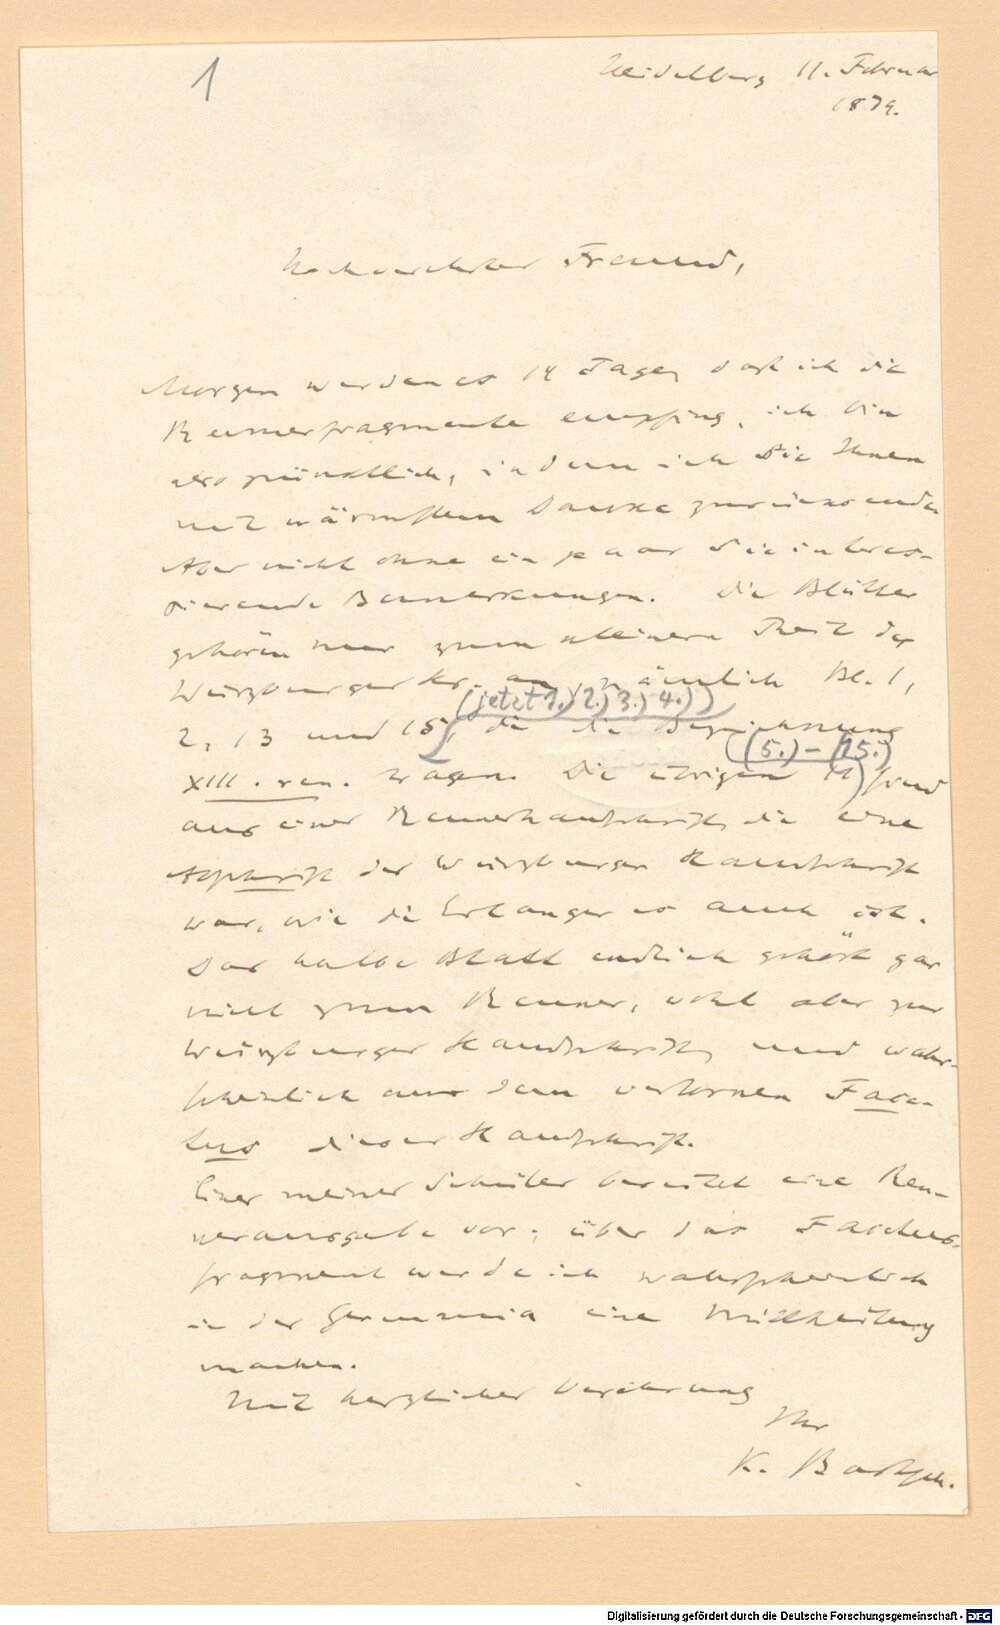 1
Heidelberg 11. Februar
1879.
Hochverehrter Freund,
Morgen werden es 14 Tage, daß ich die
Rennerfragmente empfing, ich bin
also pünktlich, indem ich Sie Ihnen
mit wärmstem Danke zurücksende
Aber nicht ohne ein paar Sie interes-
sierende Bemerkungen. Die Blätter
gehören nur zum kleinern Theil der
Würzburger Hs. an, nämlich Bl. 1,
(jetzt 1.) 2.) 3.) 4.))
2, 13 und 15, die die Bezeichnung
(5.) - (15.)
XIII. ren. tragen. Die übrigen 11 sind
aus einer Rennerhandschrift, die eine
Abschrift der Würzburger Handschrift
war, wie die Erlanger es auch ist.
Das halbe Blatt endlich gehört gar
nicht zum Renner, wohl aber zur
Würzburger Handschrift, und wahr-
scheinlich aus dem verlornen Face-
tus dieser Handschrift.
Einer meiner Schüler bereitet eine Ren-
nerausgabe vor; über das Facetus-
fragment werde ich wahrscheinlich
in der Germania eine Mittheilung
machen.
Mit herzlicher Verehrung
Ihr
K. Bartsch.
Digitalisierung gefördert durch die Deutsche Forschungsgemeinschaft - DFG